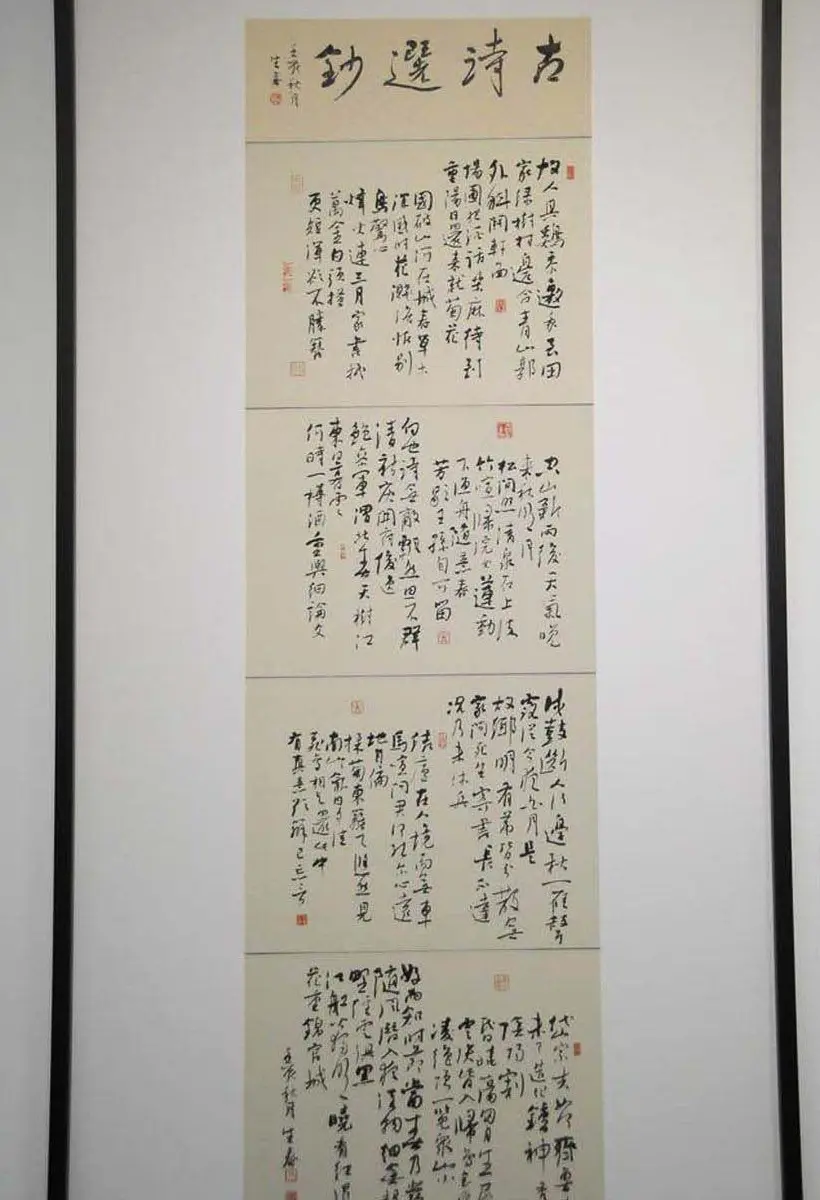 古詩選鈔
壬辰秋月
故人具鷄黍邀我至田
家綠樹村邊合青山郭
外斜開軒面
場圃把酒話桑麻待到
重陽日還來就菊花
國破山河在城春草木
深感時花濺淚恨別
鳥驚心
烽火連三月家書抵
萬金白頭搔
更短渾欲不勝簪
空山新雨後天氣晚
來秋明月
松間照清泉石上流
竹喧歸浣女蓮動
下漁舟隨意春
芳歇王孫自可留
白也詩無敵飄然思不群
清新庾開府俊逸
鮑參軍渭北春天樹江
東日暮雲
何時一樽酒重與細論文
戍鼓斷人行邊秋一雁聲
露從今夜白月是
故鄉明有弟皆分散無
家問死生寄書長不達
況乃未休兵
結廬在人境而無車
馬喧問君何能爾心遠
地自偏
採菊東籬下悠然見
南山氣日夕佳
飛鳥相與還此中
有真意欲辯已忘言
岱宗夫如何齊魯
未了造化鍾神秀
陰陽割
昏曉蕩胸生層
雲決眥入歸鳥會
凌絕頂一覽衆山小
好雨知時節當春乃發
隨風潛入夜潤物細無聲
野徑雲俱黑
江船火獨明曉看紅濕
花重錦官城
壬辰秋月